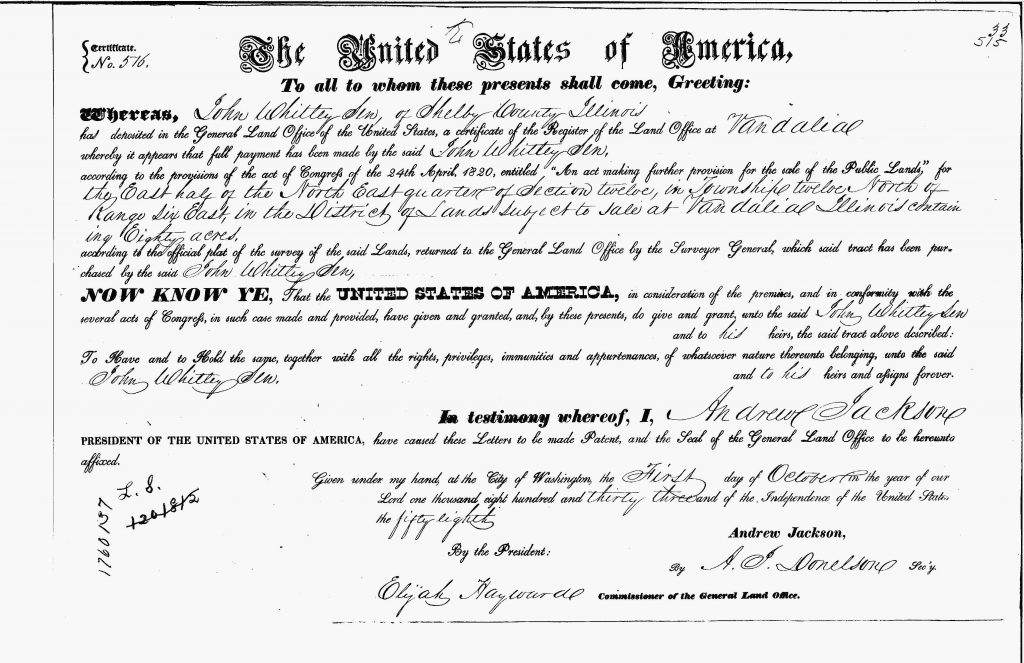 Certificate.
No. 516.
The United States of America,
To all to whom these presents shall come, Greeting:
Whereas, John Whitley Sen, of Shelby County Illinois
has deposited in the General Land Office of the United States, a certificate of the Register of the Land Office at Vandalia
whereby it appears that full payment has been made by the said John Whitley Sen.
according to the provisions of the act of Congress of the 24th April, 1820, entitled "An act making further provision for the sale of the Public Lands," for
the East half of the North East quarter of Section twelve, in Township twelve North of
Range Six East, in the District of Lands Subject to Sale at Vandalia Illinois contain
ing Eighty acres.
according to the official plat of the survey of the said Lands, returned to the General Land Office by the Surveyor General, which said tract has been pur-
chased by the said John Whitley Sen,
NOW KNOW YE, That the UNITED STATES OF AMERICA, in consideration of the premises, and in conformity with the
several acts of Congress, in such case made and provided, have given and granted, and, by these presents, do give and grant, unto the said John Whitley Sen
and to his heirs, the said tract above described:
To Have and to Hold the same, together with all the rights, privileges, immunities and appurtenances, of whatsoever nature thereunto belonging, unto the said
John Whitley Sen.
and to his heirs and assigns forever.
In testimony whereof, I, Andrew Jackson
PRESIDENT OF THE UNITED STATES OF AMERICA, have caused these Letters to be made Patent, and the Seal of the General Land Office to be hereunto
affixed.
Given under my hand, at the City of Washington, the First day of October in the year of our
Lord one thousand, eight hundred and thirty three and of the Independence of the United States
the fifty eighth
L. S.
1201812
1760137
By the President:
Andrew Jackson,
By A. J. Donelson Sec'y.
Elijah Hayward Commissioner of the General Land Office.